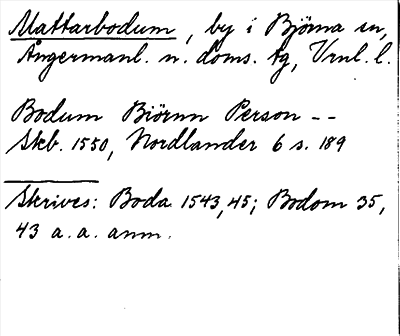 Mattarbodum, by i Björna sn,
Ångermanl. n. doms. tg, Vrnl. l.
Bodum Biörnn Person --
Skb. 1550, Nordlander 6 s. 189
Skrives: Boda 1543, 45; Bodom 35,
43 a. a. anm.